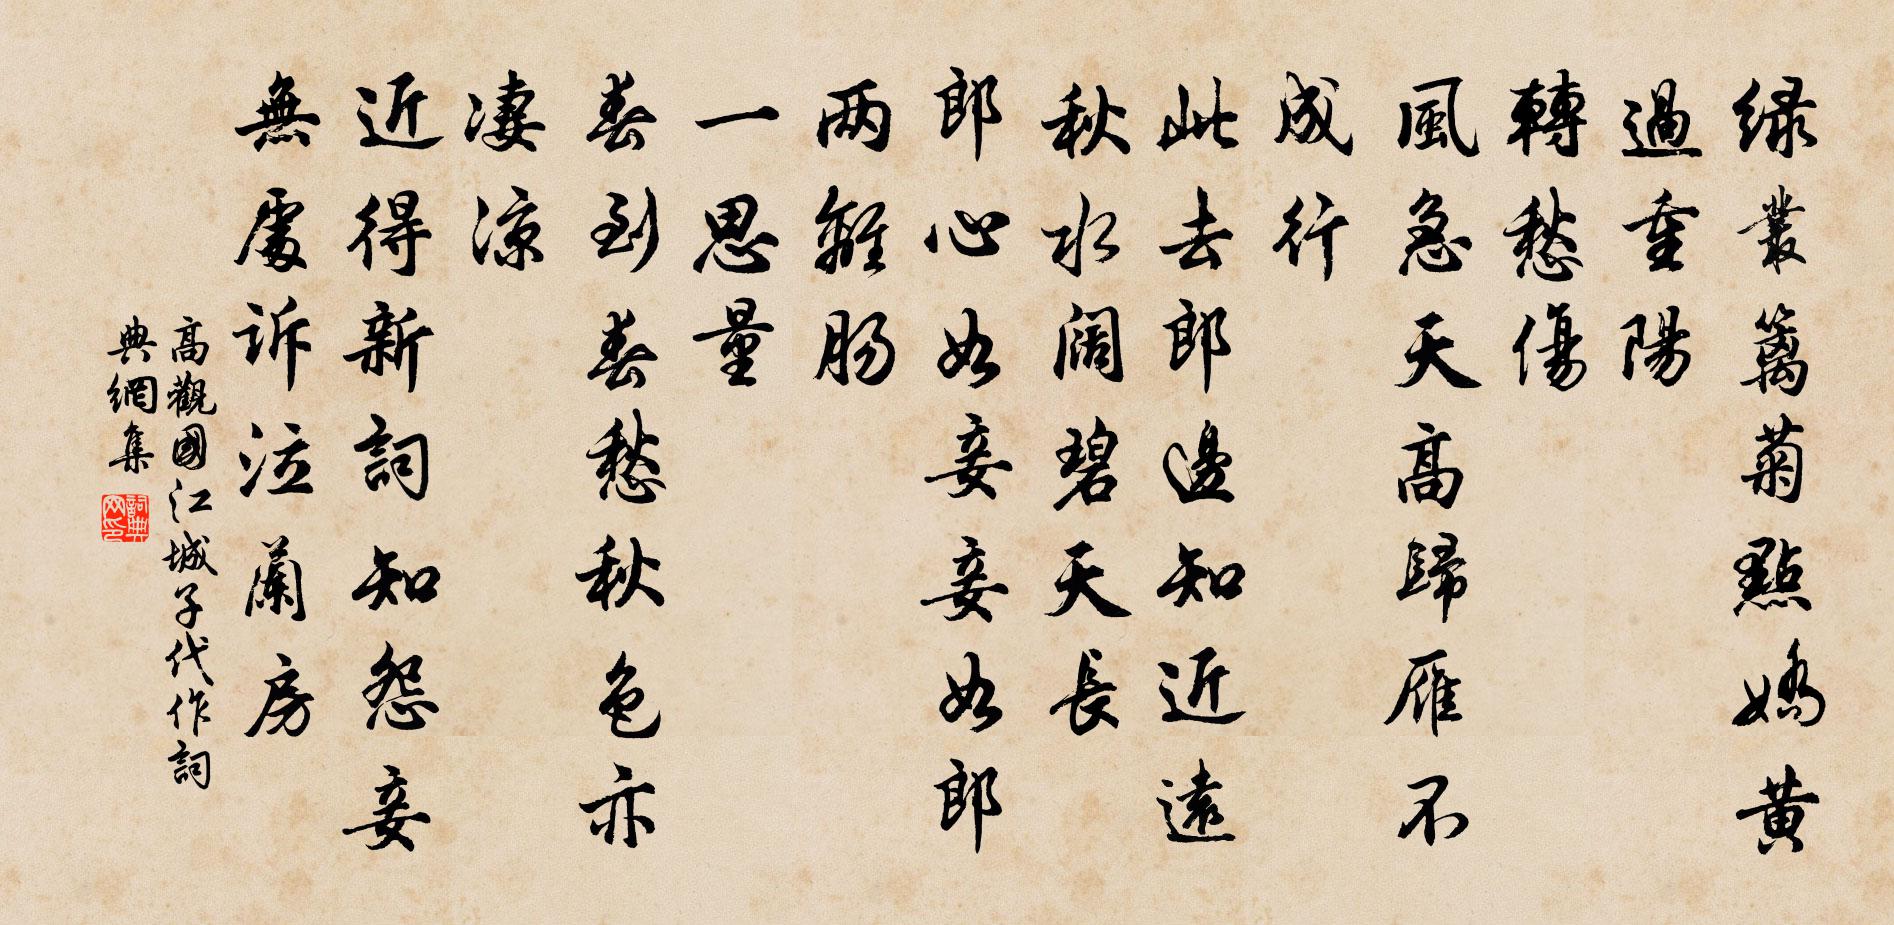 緑叢篱菊點嬌黄
過重陽
轉愁傷
風急天高歸雁不
成行
此去郎邊知近遠
秋水闊碧天長
郎心如妾妾如郎
两離肠
一思量
春到春愁秋色亦
凄凉
近得新詞知怨妾
無處訴泣蘭房
高觀國江城子代作詞
典網集
詞典
网印